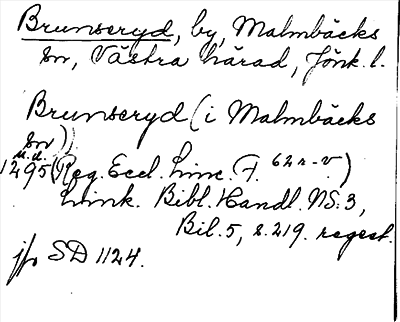 Brunseryd, by, Malmbäcks
sn, Västra härad, Jönk. l.
Brunseryd (i Malmbäcks
sn)
u. d.
1295 (Reg. Eccl. Linc. F. 62 r-v.)
Link. Bibl. Handl. NS: 3,
Bil. 5, s. 219. regest.
jfr SD 1124.